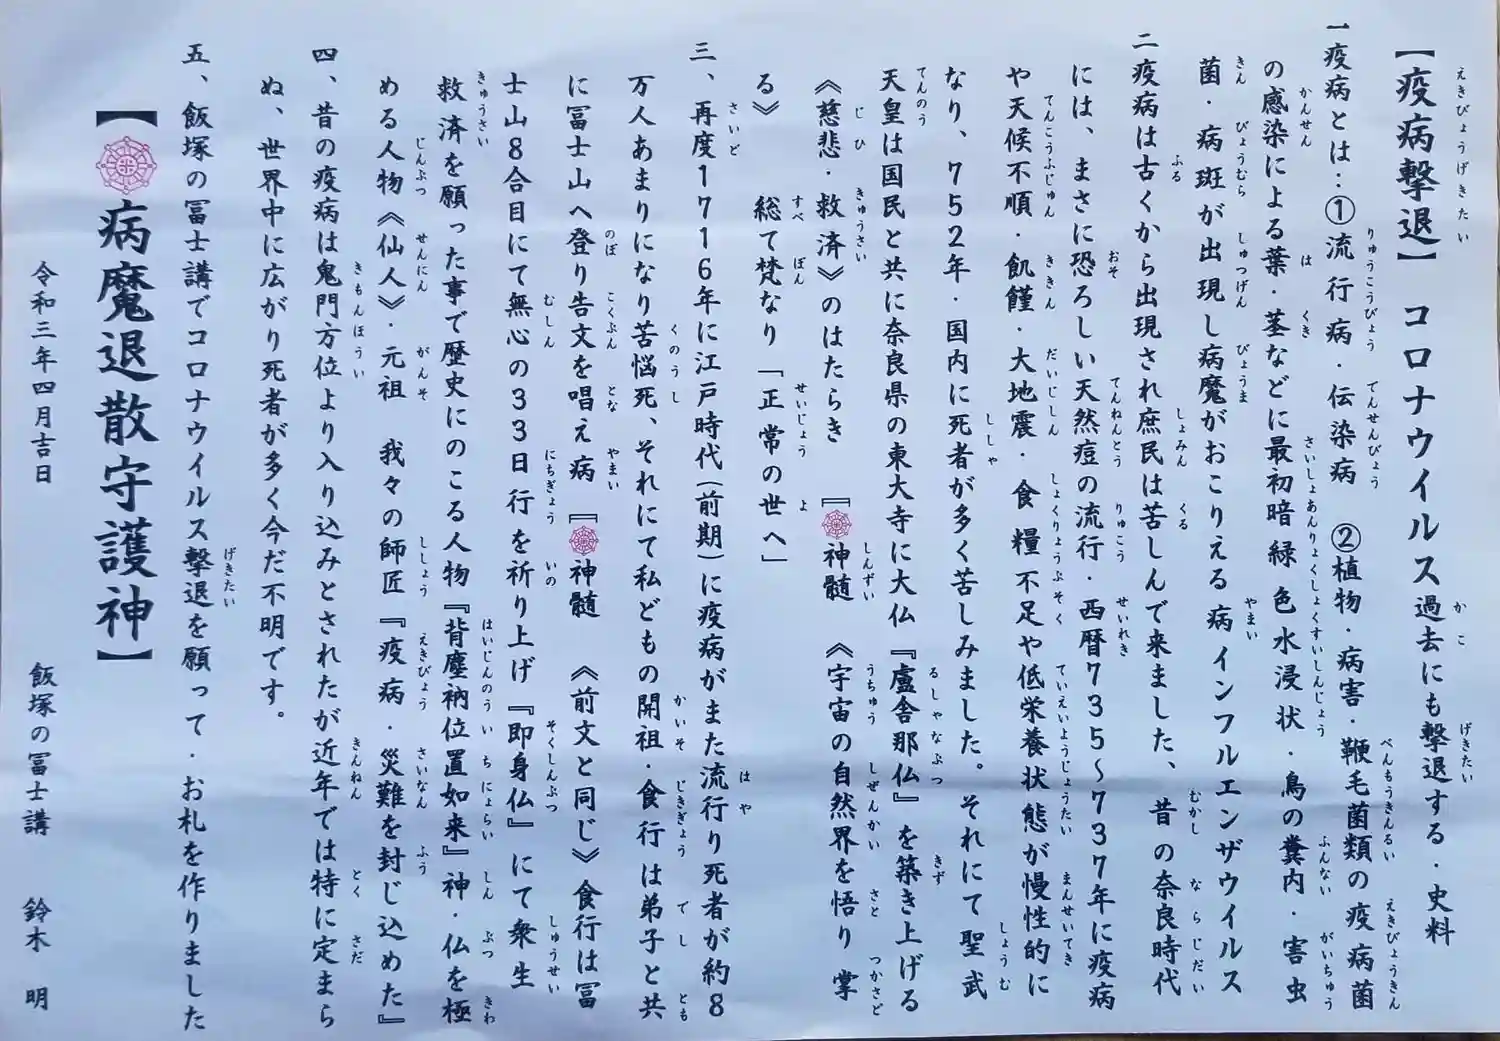 【疫病撃退】 コロナウイルス過去にも撃退する・史料
一疫病とは‥①流行病・伝染病 ②植物・病害・鞭毛菌類の疫病菌
の感染による葉・茎などに最初暗緑色水浸状・鳥の糞内・害虫
菌・病斑が出現し病魔がおこりえる病インフルエンザウイルス
二疫病は古くから出現され庶民は苦しんで来ました、昔の奈良時代
には、まさに恐ろしい天然痘の流行・西暦735～737年に疫病
や天候不順・飢饉・大地震・食糧不足や低栄養状態が慢性的に
なり、752年・国内に死者が多く苦しみました。それにて聖武
天皇は国民と共に奈良県の東大寺に大仏『盧舎那仏』を築き上げる
《慈悲・救済》のはたらき 『神髄 《宇宙の自然界を悟り掌
る》 総て梵なり「正常の世へ」
三、再度1716年に江戸時代(前期)に疫病がまた流行り死者が約8
万人あまりになり苦悩死、それにて私どもの開祖・食行は弟子と共
に冨士山へ登り告文を唱え病『神髄 《前文と同じ》食行は冨
士山8合目にて無心の33日行を祈り上げ『即身仏』にて衆生
救済を願った事で歴史にのこる人物『背塵衲位置如来』神・仏を極
める人物《仙人》・元祖 我々の師匠『疫病・災難を封じ込めた』
四、昔の疫病は鬼門方位より入り込みとされたが近年では特に定まら
ぬ、世界中に広がり死者が多く今だ不明です。
五、飯塚の冨士講でコロナウイルス撃退を願って・お札を作りました
【病魔退散守護神】
令和三年四月吉日 飯塚の冨士講 鈴木 明